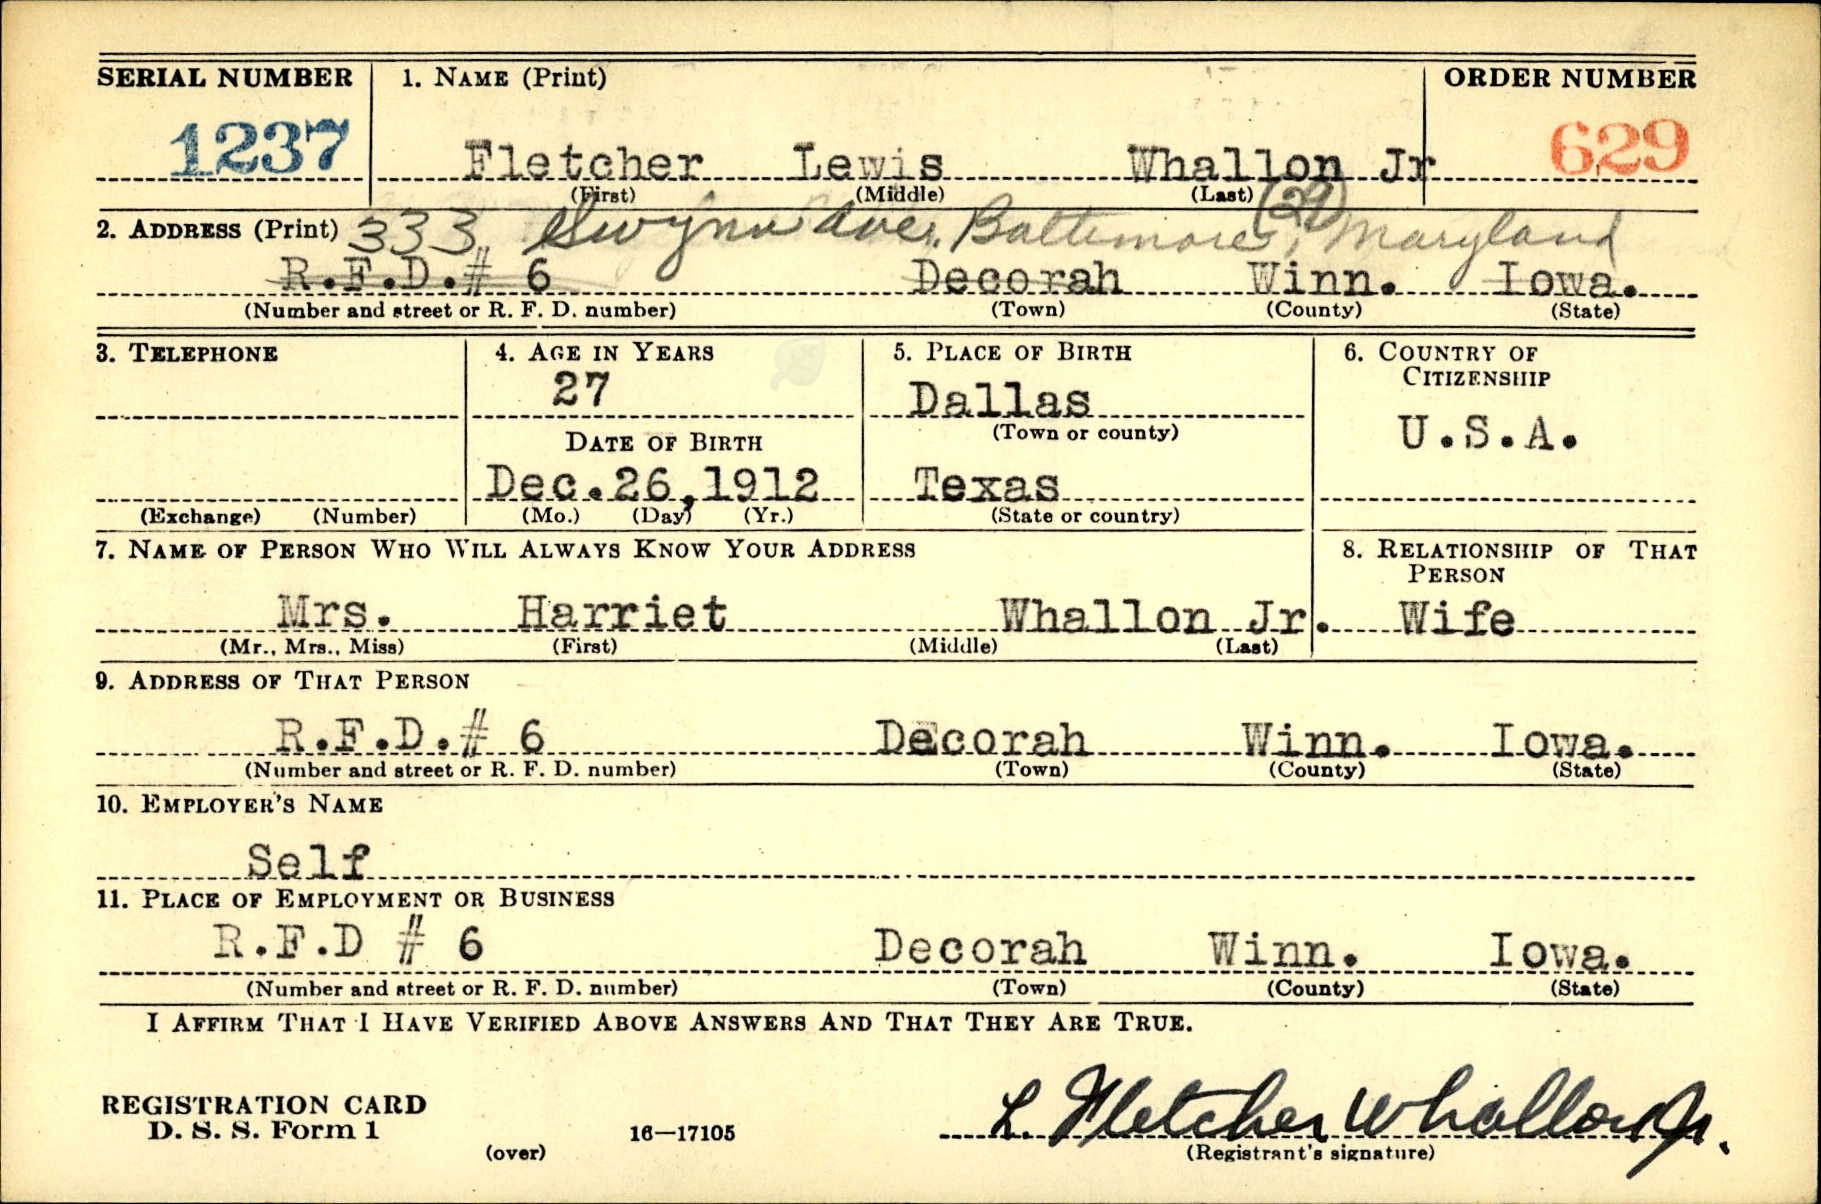 SERIAL NUMBER 1. NAME (Print) ORDER NUMBER
1237 Fletcher Lewis Whallon Jr 629
(First) (Middle) (Last)
2. ADDRESS (Print) 333 Gwynn Ave. Baltimore (29), Maryland
R.F.D.# 6 Decorah Winn. Iowa.
(Number and street or R. F. D. number) (Town) (County) (State)
3. TELEPHONE 4. AGE IN YEARS 5. PLACE OF BIRTH 6. COUNTRY OF CITIZENSHIP
27 Dallas U.S.A.
(Town or county)
DATE OF BIRTH
Dec.26,1912 Texas
(Exchange) (Number) (Mo.) (Day) (Yr.) (State or country)
7. NAME OF PERSON WHO WILL ALWAYS KNOW YOUR ADDRESS 8. RELATIONSHIP OF THAT PERSON
Mrs. Harriet Whallon Jr. Wife
(Mr., Mrs., Miss) (First) (Middle) (Last)
9. ADDRESS OF THAT PERSON
R.F.D.# 6 DEcorah Winn. Iowa.
(Number and street or R. F. D. number) (Town) (County) (State)
10. EMPLOYER'S NAME
Self
11. PLACE OF EMPLOYMENT OR BUSINESS
R.F.D # 6 Decorah Winn. Iowa.
(Number and street or R. F. D. number) (Town) (County) (State)
I AFFIRM THAT I HAVE VERIFIED ABOVE ANSWERS AND THAT THEY ARE TRUE.
REGISTRATION CARD
D. S. S. Form 1
(over) 16—17105
L. Fletcher Whallon Jr.
(Registrant's signature)